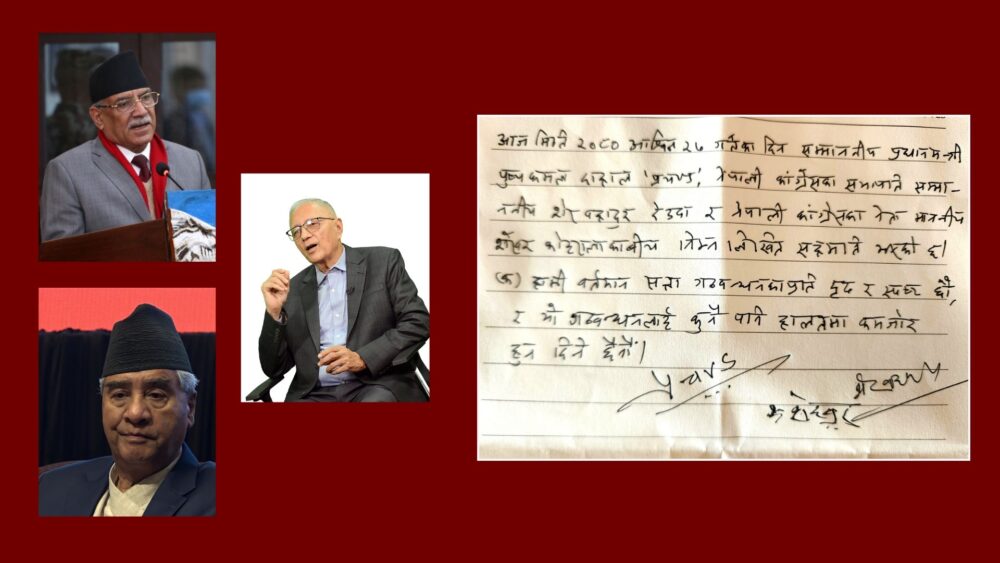 आज मिति २०८० आश्विन २७ गतेका दिन सम्माननीय प्रधानमन्त्री
पुष्पकमल दाहाल 'प्रचण्ड', नेपाली कांग्रेसका सभापति सम्मा-
ननीय शेरबहादुर देउवा र नेपाली कांग्रेसका नेता माननीय
शेखर कोइरालाकाबीच निम्न लिखित सहमति भएको छ।
(क) हामी वर्तमान सत्ता गठबन्धनकाप्रति दृढ र स्पष्ट छौं,
र यो गठबन्धनलाई कुनै पनि हालतमा कमजोर
हुन दिने छैनौं।
प्रचण्ड